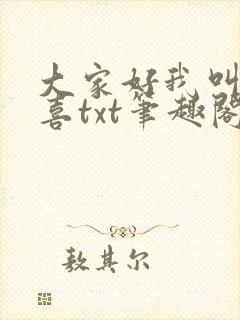 大家好我叫
喜txt笔趣阁
敖其尔